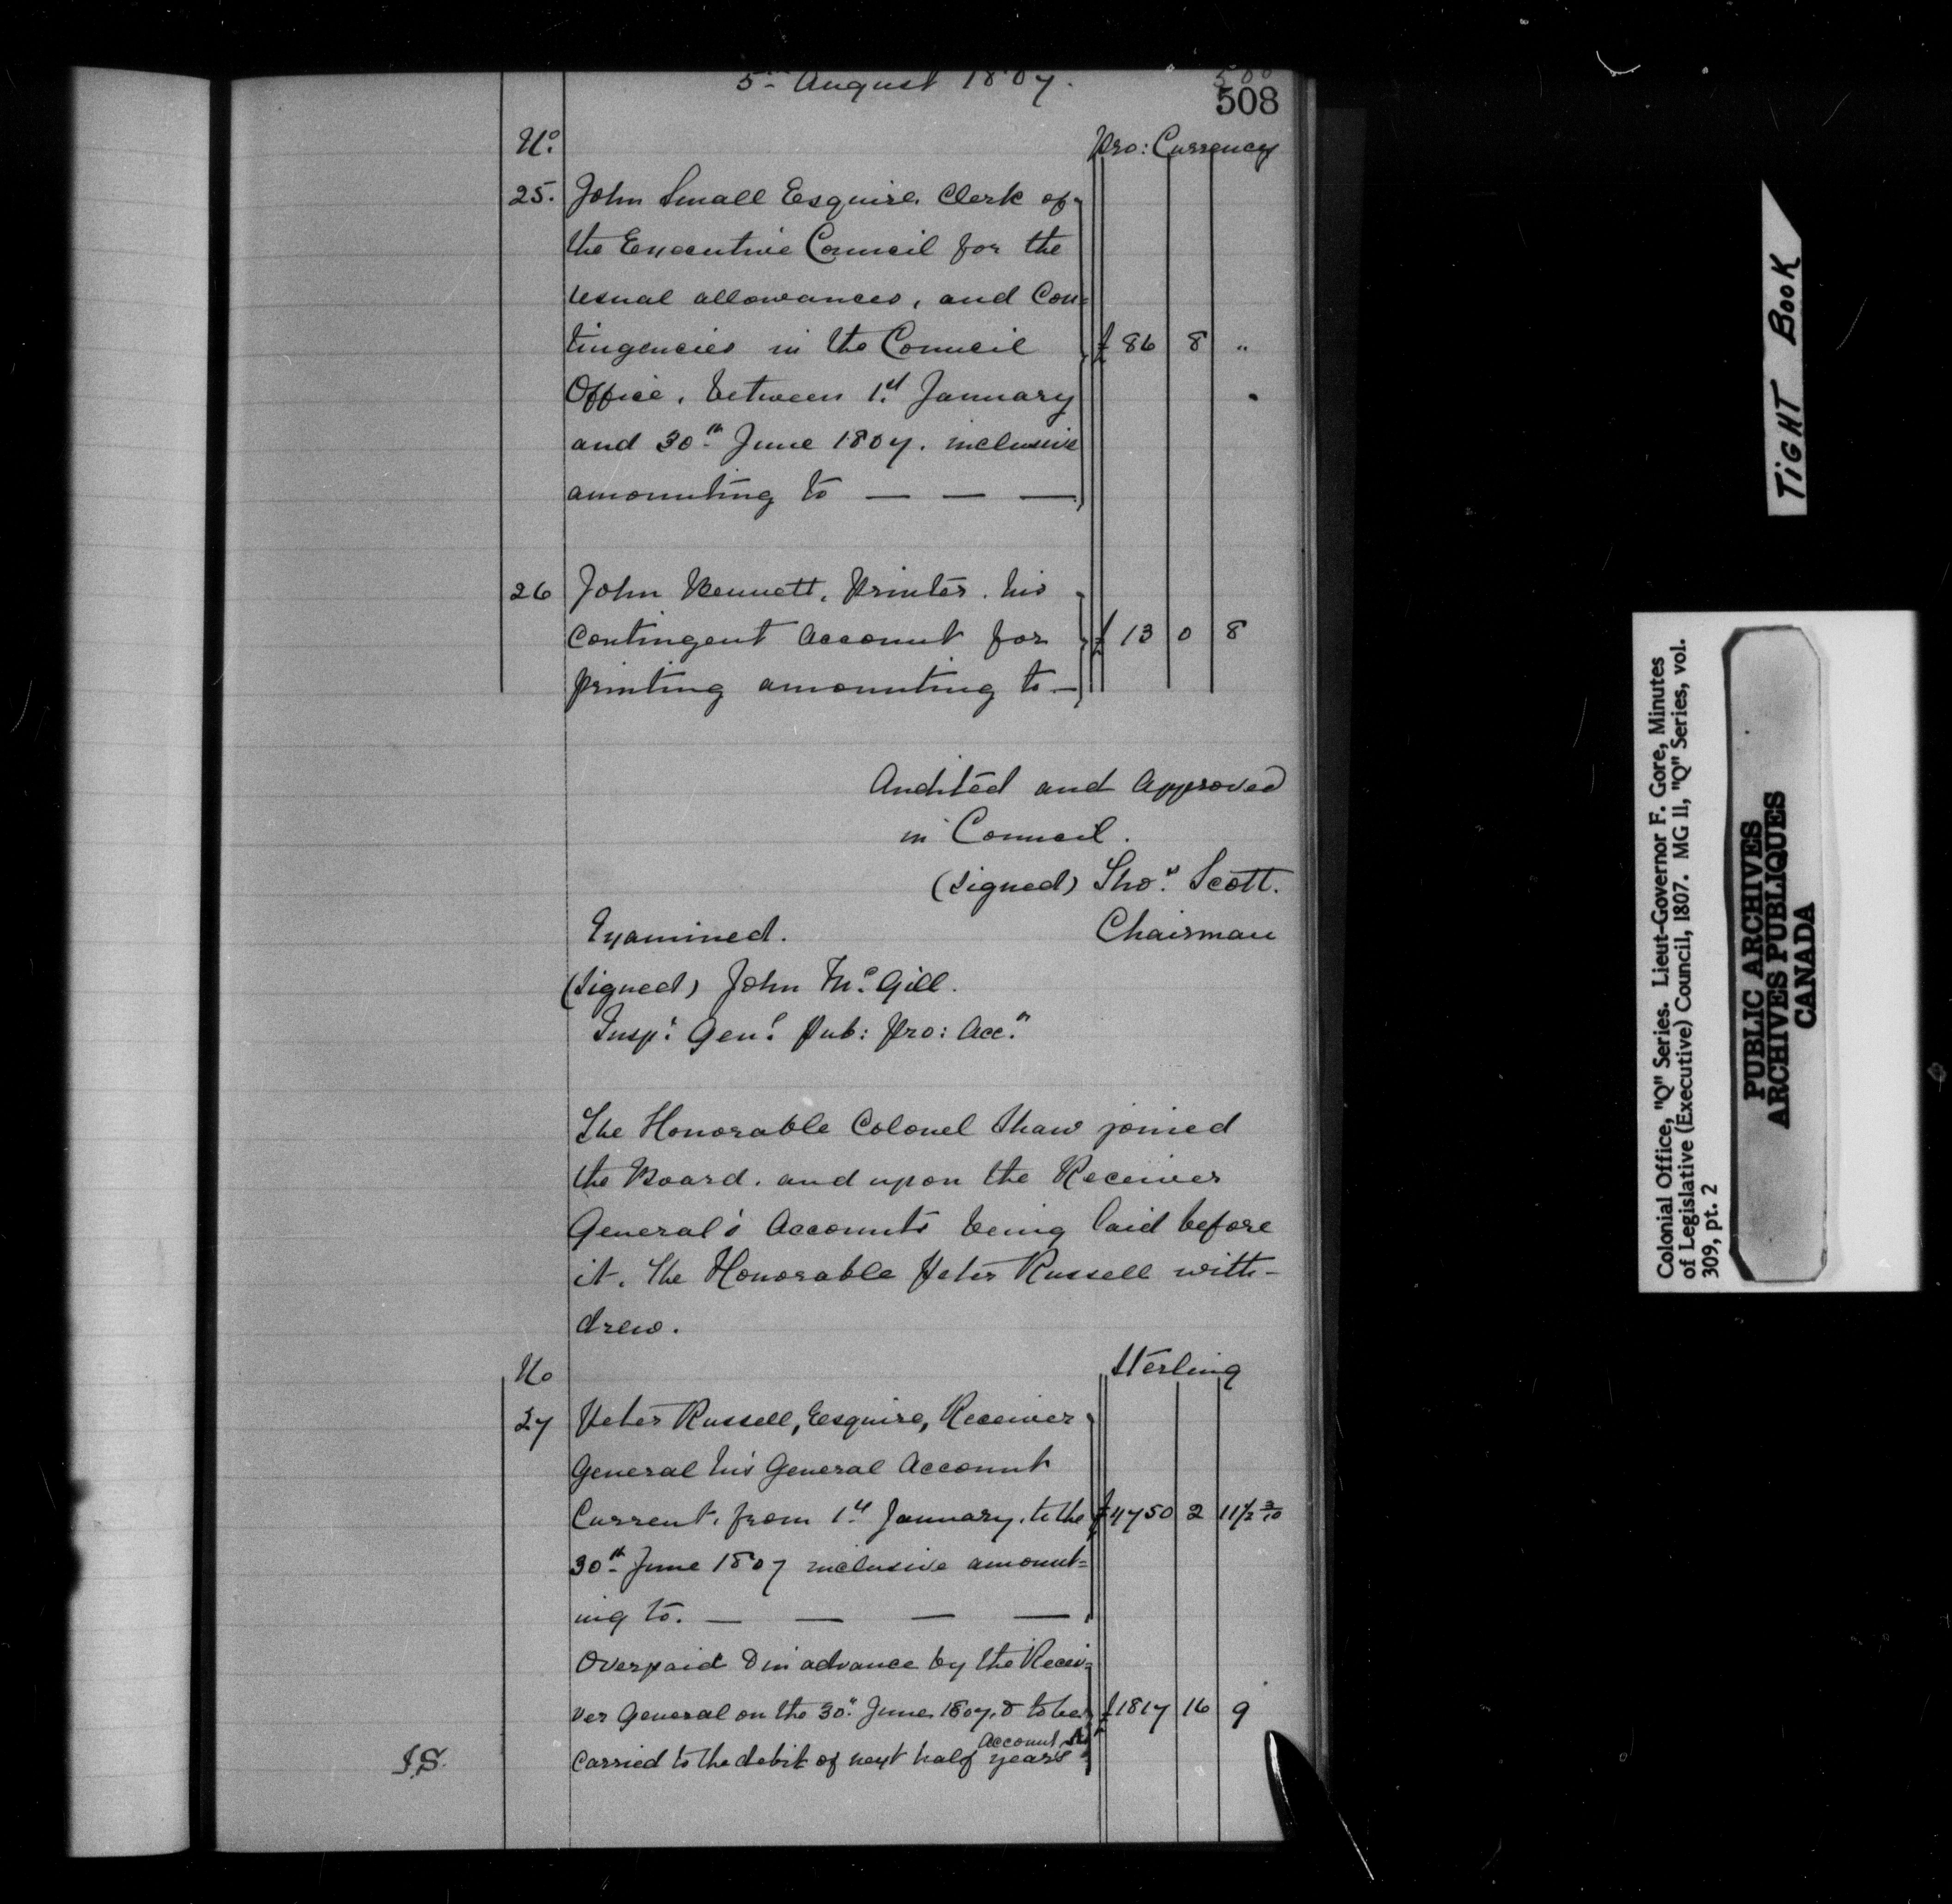 5th August 1807.
500
508
No.
Pro: Currency
25. John Small Esquire, Clerk of
the Executive Council for the
usual allowances, and Con=
tingencies in the Council £ 86 8 "
Office, between 1st January
and 30th June 1807. inclusive
amounting to — — —
26 John Bennett, Printer, his
Contingent Account for £ 13 0 8
printing amounting to —
Audited and Approved
in Council.
(signed) Thos. Scott.
Examined. Chairman
(signed) John McGill.
Insp. Genl. Pub: Pro: Accts
The Honorable Colonel Shaw joined
the Board, and upon the Receiver
General's Accounts being laid before
it, The Honorable Peter Russell with-
drew.
No Sterling
27 Peter Russell, Esquire, Receiver
General his General Account
Current, from 1st January, to the £4750 2 11 1/2 3/10
30th June 1807 inclusive amount=
ing to. — — — —
Overpaid & in advance by the Recei=
ver General on the 30th June 1807, & to be £1817 16 9
Account
Carried to the debit of next half years
J.S.
TIGHT BOOK
Colonial Office, "Q" Series. Lieut-Governor F. Gore, Minutes
of Legislative (Executive) Council, 1807. MG 11, "Q" Series, vol.
309, pt. 2
PUBLIC ARCHIVES
ARCHIVES PUBLIQUES
CANADA